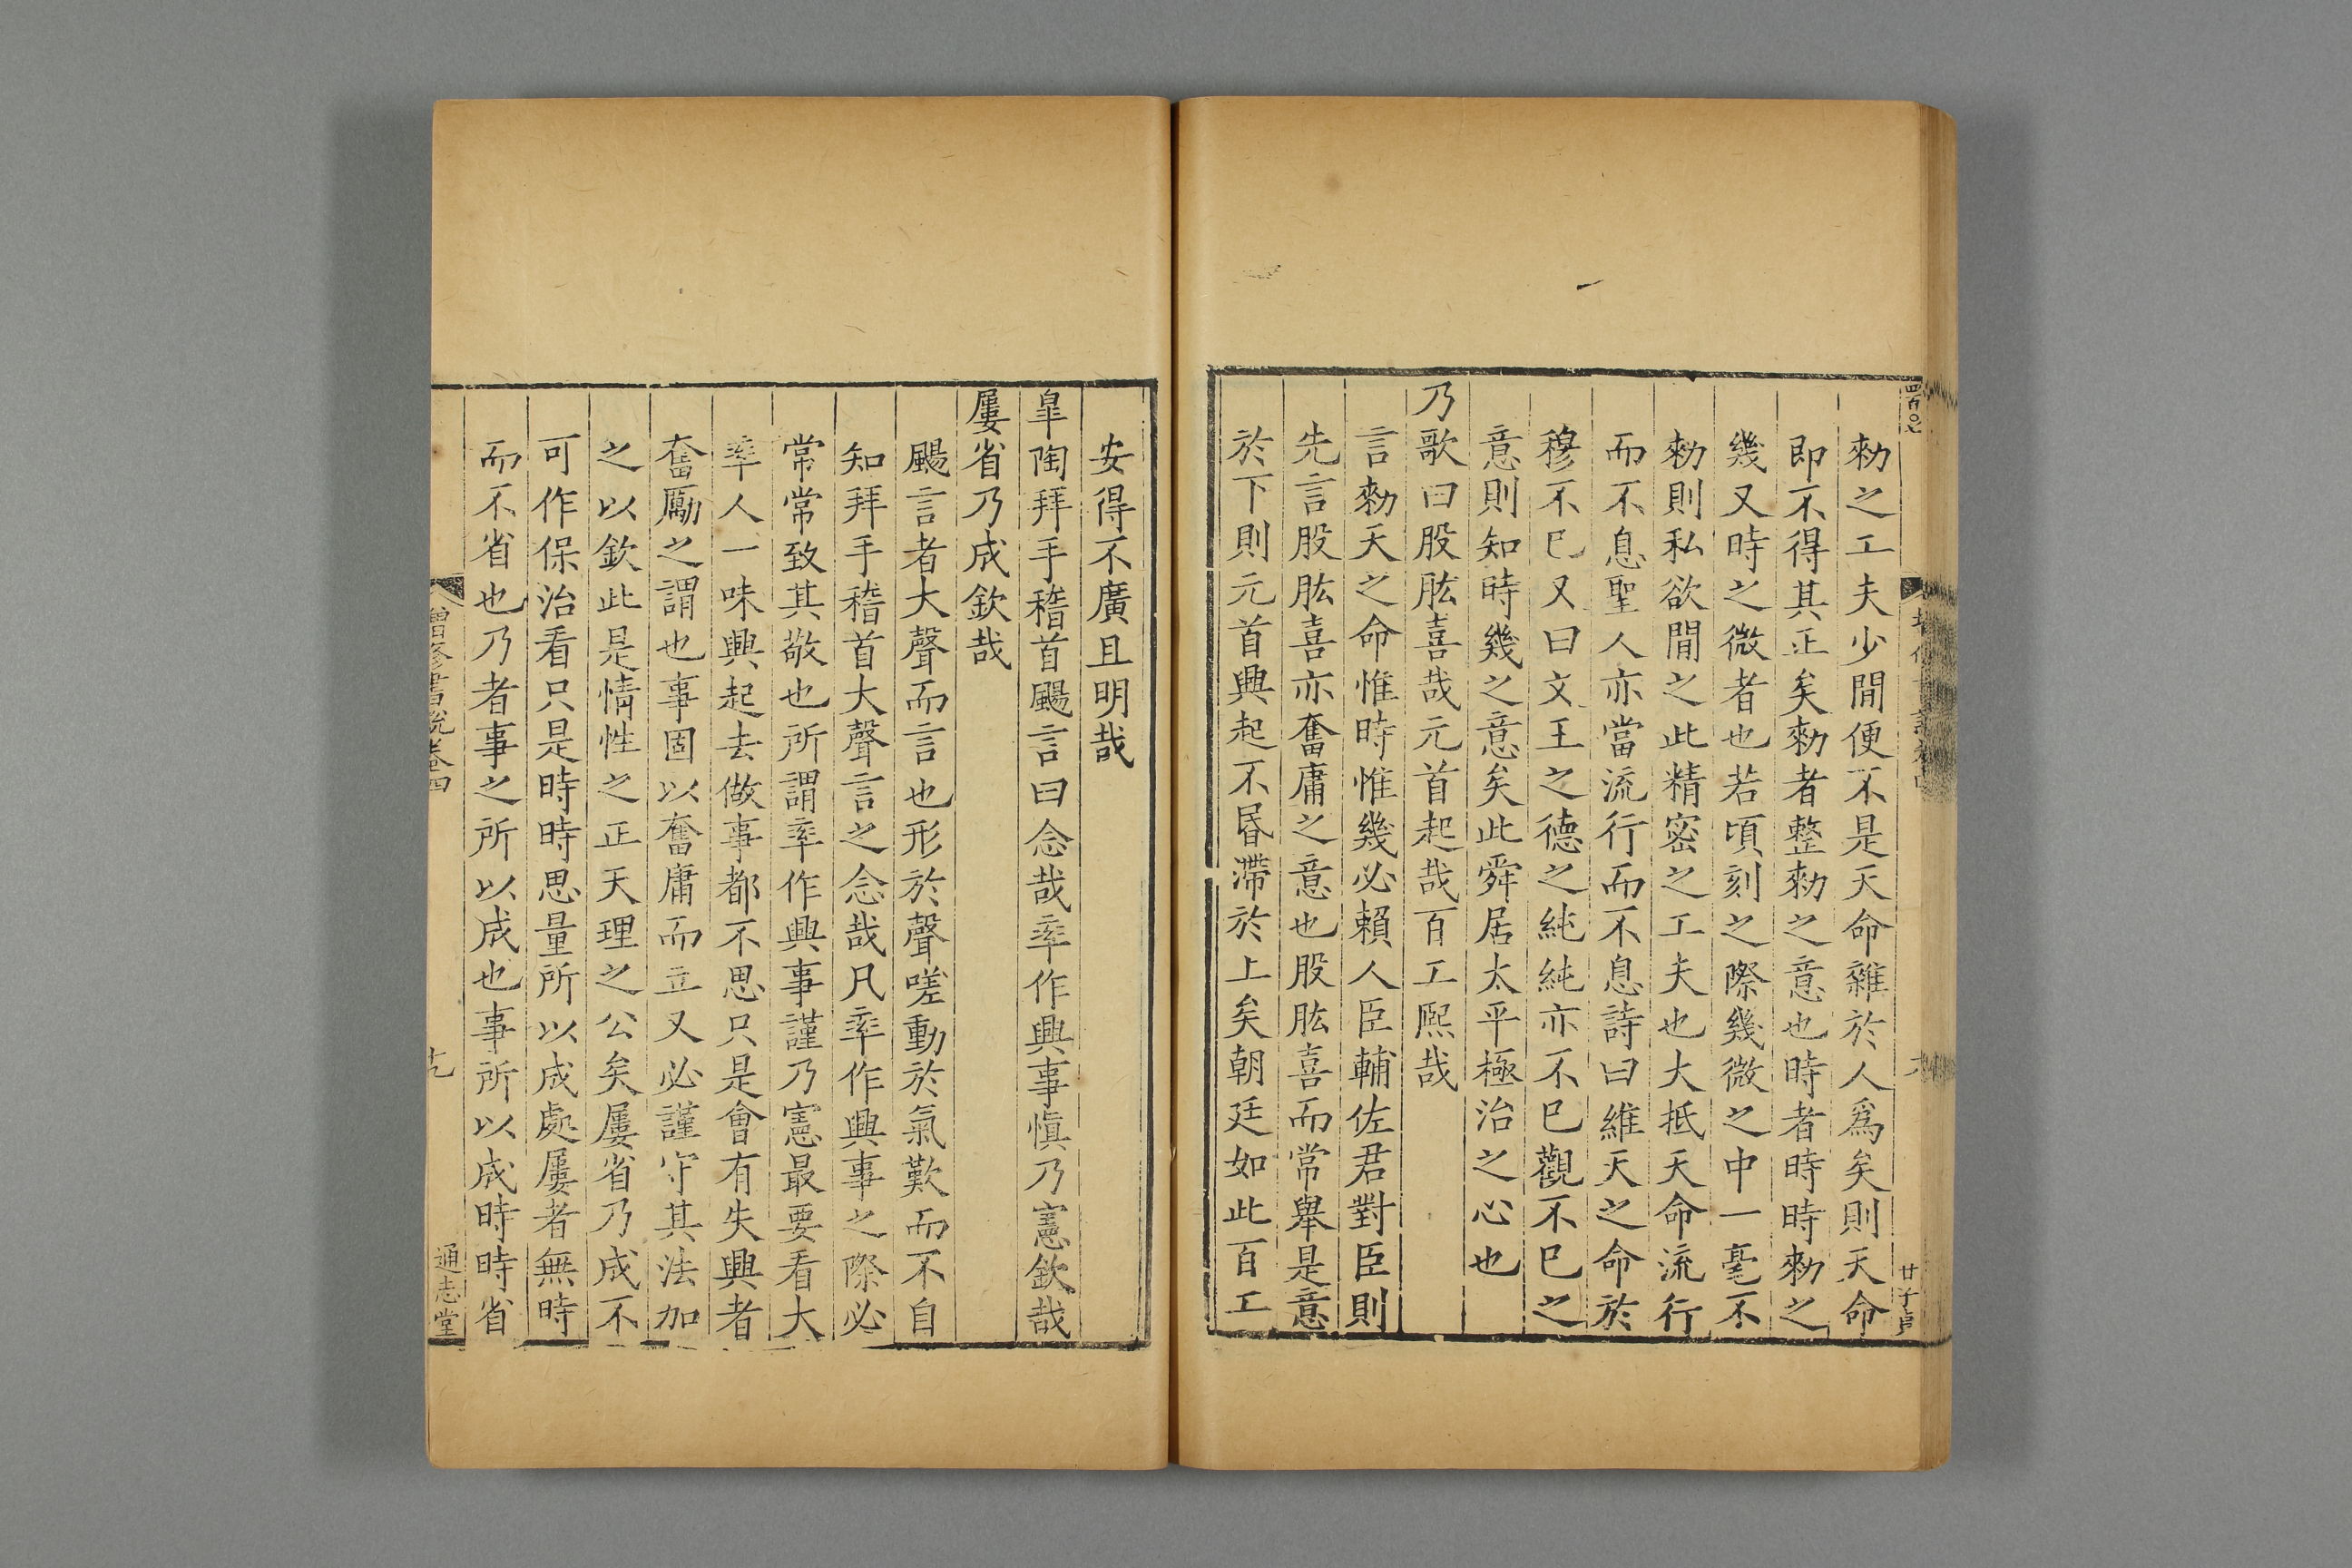 勑之工夫少閒便不是天命雜於人爲矣則天命
即不得其正矣勑者整勑之意也時者時時勑之
幾又時之微者也若頃刻之際幾微之中一毫不
勑則私欲閒之此精密之工夫也大抵天命流行
而不息聖人亦當流行而不息詩曰維天之命於
穆不已又曰文王之德之純純亦不已觀不已之
意則知時幾之意矣此舜居太平極治之心也
乃歌曰股肱喜哉元首起哉百工熙哉
言勑天之命惟時惟幾必賴人臣輔佐君對臣則
先言股肱喜亦奮庸之意也股肱喜而常舉是意
於下則元首興起不昬滯於上矣朝廷如此百工
安得不廣且明哉
臯陶拜手稽首颺言曰念哉率作興事愼乃憲欽哉
屢省乃成欽哉
颺言者大聲而言也形於聲嗟動於氣歎而不自
知拜手稽首大聲言之念哉凡率作興事之際必
常常致其敬也所謂率作興事謹乃憲最要看大
率人一味興起去做事都不思只是會有失興者
奮勵之謂也事固以奮庸而立又必謹守其法加
之以欽此是情性之正天理之公矣屢省乃成不
可作保治看只是時時思量所以成處屢者無時
而不省也乃者事之所以成也事所以成時時省
增修書說卷四
十九
通志堂